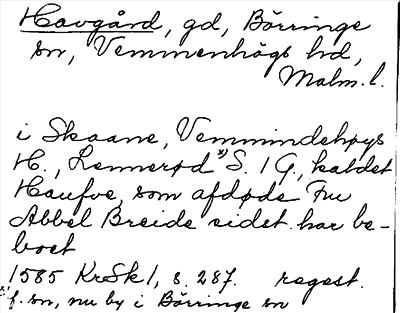 Havgård, gd, Börringe
sn, Vemmenhögs hd,
Malm. l.
i Skaane, Vemmindehøys
H., Lennerød *) S. 1 G., kaldet
Haufve, som afdøde Fru
Abbel Breide sidst har be-
boet
1585 KrSk 1, s. 287. regest.
*) f. sn, nu by i Börringe sn